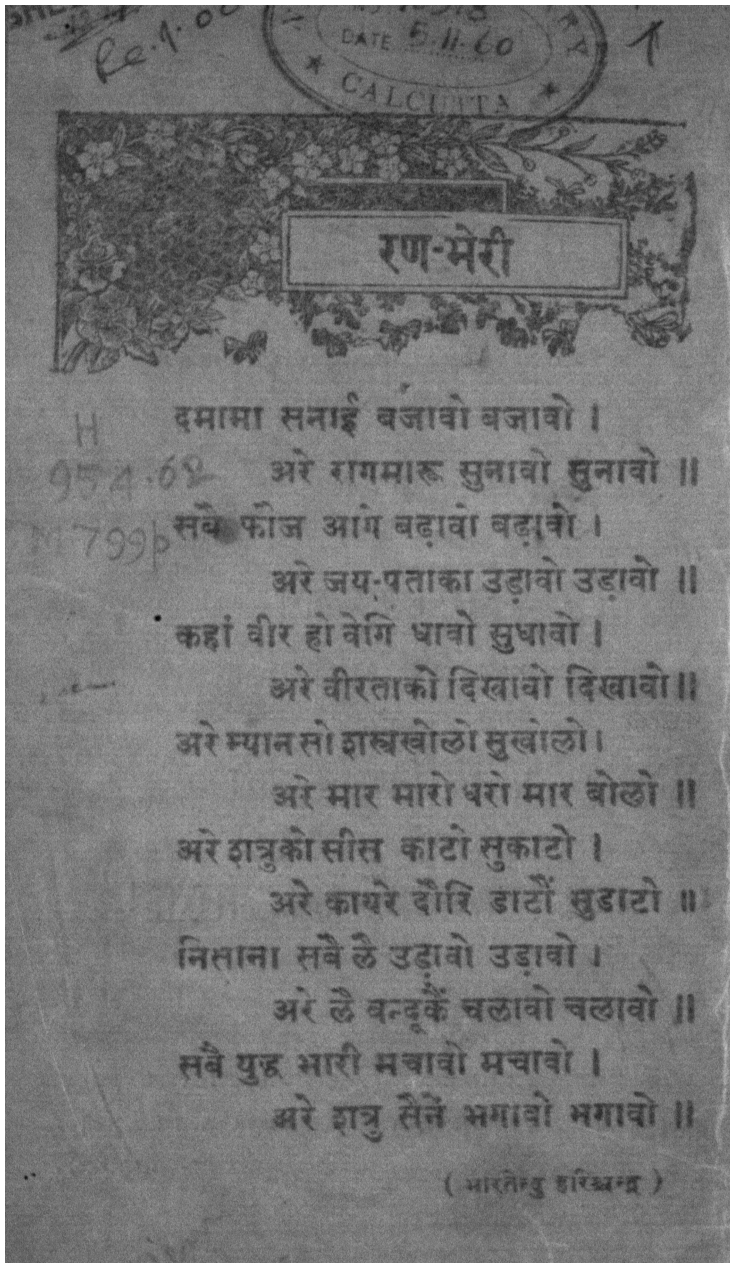 Re. 1. 00
DATE 5.11.60
CALCUTTA
रण-भेरी
दमामा सनाई बजावो बजावो ।
H
954.02
अरे रागमारू सुनावो सुनावो ॥
सबै फौज आगे बढ़ावो बढ़ावो ।
M 799p
अरे जय-पताका उड़ावो उड़ावो ॥
कहां वीर हो वेगि धावो सुधावो ।
अरे वीरताको दिखावो दिखावो॥
अरे म्यानसो शस्त्रखोलो सुखोलो।
अरे मार मारो धरो मार बोलो ॥
अरे शत्रुको सीस काटो सुकाटो ।
अरे कायरे दौरि डाटौं सुडाटो ॥
निसाना सबै लै उड़ावो उड़ावो ।
अरे लै बन्दूकैं चलावो चलावो ॥
सबै युद्ध भारी मचावो मचावो ।
अरे शत्रु सैनें भगावो भगावो ॥
( भारतेन्दु हरिश्चन्द्र )